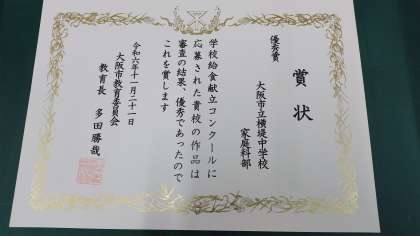 賞状
優秀賞
大阪市立横堤中学校
家庭科部
学校給食献立コンクールに
応募された貴校の作品は
審査の結果、優秀であったので
これを賞します
令和六年十一月二十一日
大阪市教育委員会
教育長 多田勝哉